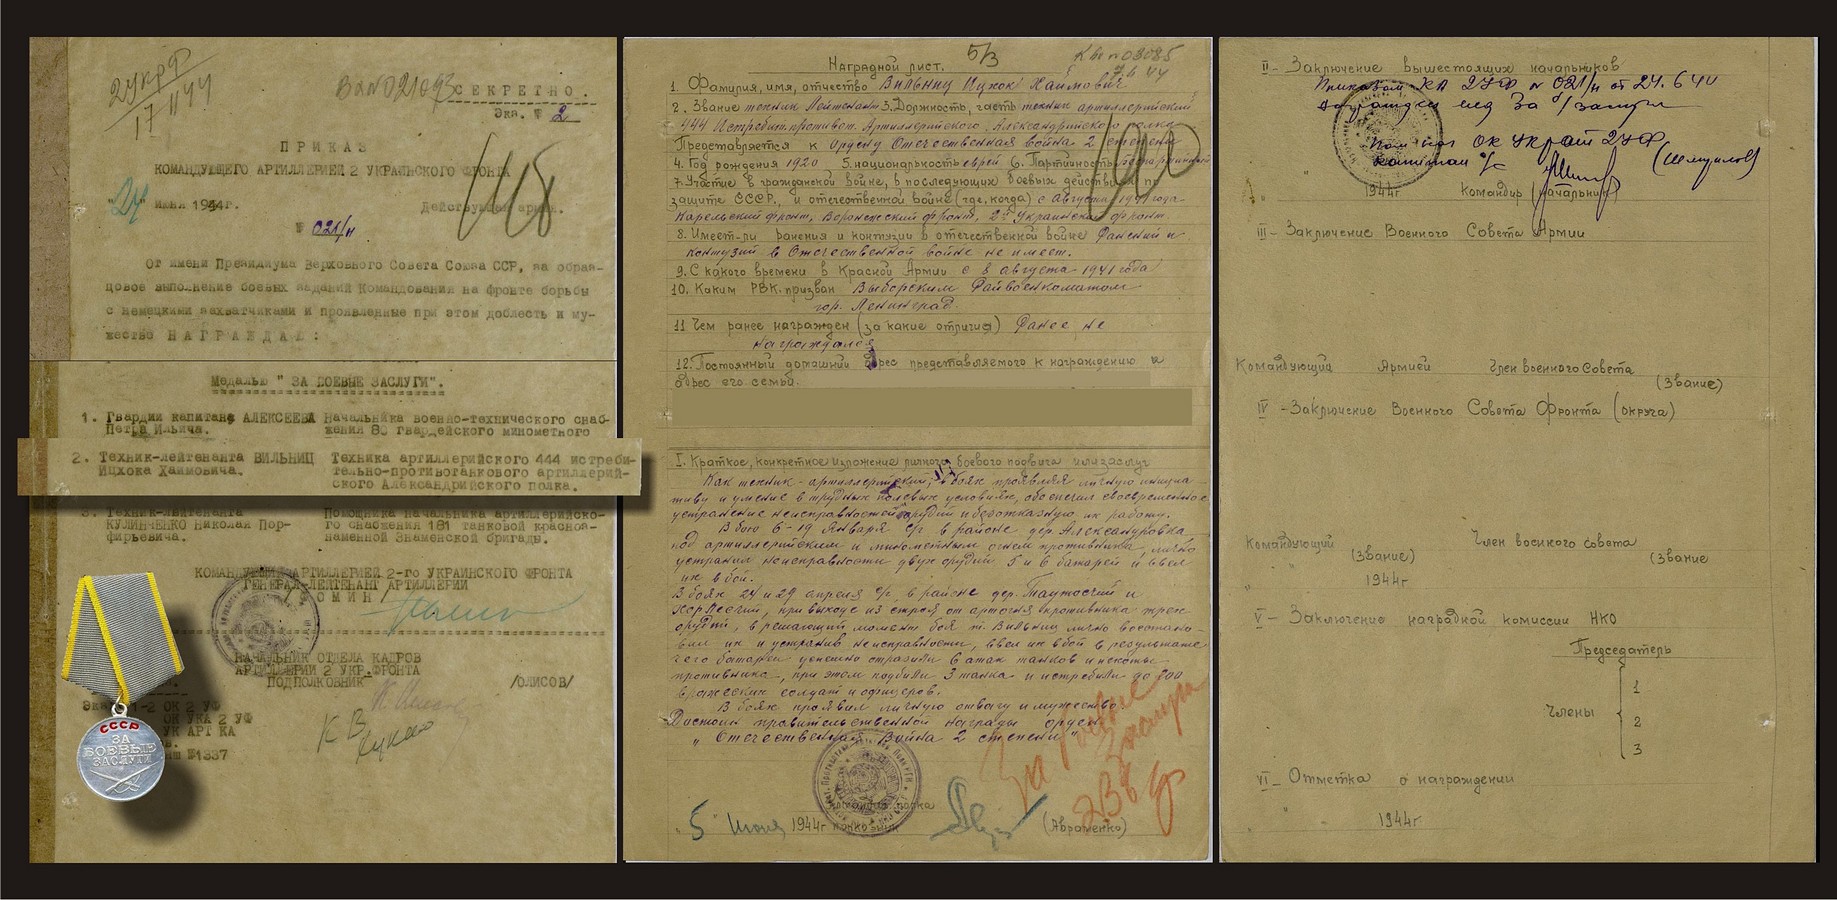 2 УКРФ
17 II 44
Вх№021093
СЕКРЕТНО.
Экз. № 2
ПРИКАЗ
КОМАНДУЮЩЕГО АРТИЛЛЕРИЕЙ 2 УКРАИНСКОГО ФРОНТА
"24" июня 1944г. Действующая армия.
№ 021/н
От имени Президиума Верховного Совета Союза ССР, за образ-
цовое выполнение боевых заданий Командования на фронте борьбы
с немецкими захватчиками и проявленные при этом доблесть и му-
жество НАГРАЖДАЮ:
Медалью "ЗА БОЕВЫЕ ЗАСЛУГИ".
1. Гвардии капитана АЛЕКСЕЕВА Начальника военно-технического снаб-
Петра Ильича. жения 80 гвардейского минометного
2. Техник-лейтенанта ВИЛЬНИЦ Техника артиллерийского 444 истреби-
Ицхока Хаимовича. тельно-противотанкового артиллерий-
ского Александрийского полка.
3. Техник-лейтенанта Помощника начальника артиллерийско-
КУЛИНЧЕНКО Николая Пор- го снабжения 181 танковой красно-
фирьевича. наменной Знаменской бригады.
КОМАНДУЮЩИЙ АРТИЛЛЕРИЕЙ 2-го УКРАИНСКОГО ФРОНТА
ГЕНЕРАЛ-ЛЕЙТЕНАНТ АРТИЛЛЕРИИ
/ФОМИН/
НАЧАЛЬНИК ОТДЕЛА КАДРОВ
АРТИЛЛЕРИИ 2 УКР.ФРОНТА
ПОДПОЛКОВНИК /ОЛИСОВ/
1-2 ОК 2 УФ
ОК УКА 2 УФ
УК АРТ КА
№1337
СССР
ЗА
БОЕВЫЕ
ЗАСЛУГИ
5/3
Кв№08085
7.6.44
Наградной лист.
1. Фамилия, имя, отчество Вильниц Ицхок Хаймович
2. Звание техник Лейтенант 3. Должность, часть техник артиллерийский
444 Истребит. противот. Артиллерийского, Александрийского полка
Представляется к Ордену Отечественная война 2 степени
4. Год рождения 1920 5. национальность еврей 6. Партийность беспартийный
7. Участие в гражданской войне, в последующих боевых действиях по
защите СССР, и отечественной войне (где, когда) с Августа 1941 года
Карельский фронт, Воронежский фронт, 2й Украинский фронт.
8. Имеет-ли ранения и контузии в отечественной войне Ранений и
контузий в Отечественной войне не имеет.
9. С какого времени в Красной Армии с 8 августа 1941 года
10. Каким РВК призван Выборгским Райвоенкоматом
гор. Ленинград.
11 Чем ранее награжден (за какие отличия) Ранее не
награждался
12. Постоянный домашний адрес представляемого к награждению и
адрес его семьи.
I. Краткое, конкретное изложение личного боевого подвига или заслуг
Как техник-артиллерийский, в боях проявлял личную инициа-
тиву и умение в трудных полевых условиях, обеспечил своевременное
устранение неисправностей орудий и безотказную их работу.
В бою 6-19 Января с/г в районе дер. Александровка
под артиллерийским и минометным огнем противника, лично
устранил неисправности двух орудий 5 и 6 батарей и ввел
их в бой.
В боях 24 и 29 апреля с/г, в районе дер. Таутосчий и
Хорлесчий, при выходе из строя от артогня противника трех
орудий, в решающий момент боя т. Вильниц лично восстано-
вил их и устранив неисправности, ввел их в бой в результате
чего батареи успешно отразили 6 атак танков и пехоты
противника, при этом подбили 3 танка и истребили до 200
вражеских солдат и офицеров.
В боях проявил личную отвагу и мужество.
Достоин правительственной награды орден
"Отечественная Война 2 степени"
За боевые
заслуги
командир полка
"5" Июня 1944г полковник (Авраменко)
II - Заключение вышестоящих начальников
Приказом КА 2УФ № 021/н от 24.6.44
награжден мед За б/заслуги
Пом нач ОК УК арт 2УФ
капитан а/с (Шмуилов)
1944г Командир (начальник)
III - Заключение Военного Совета Армии
Командующий Армией Член военного Совета
(Звание)
IV - Заключение Военного Совета Фронта (округа)
Командующий (звание) Член военного совета
(Звание
1944г
V - Заключение наградной комиссии НКО
Председатель
1
Члены 2
3
VI - Отметка о награждении
1944г